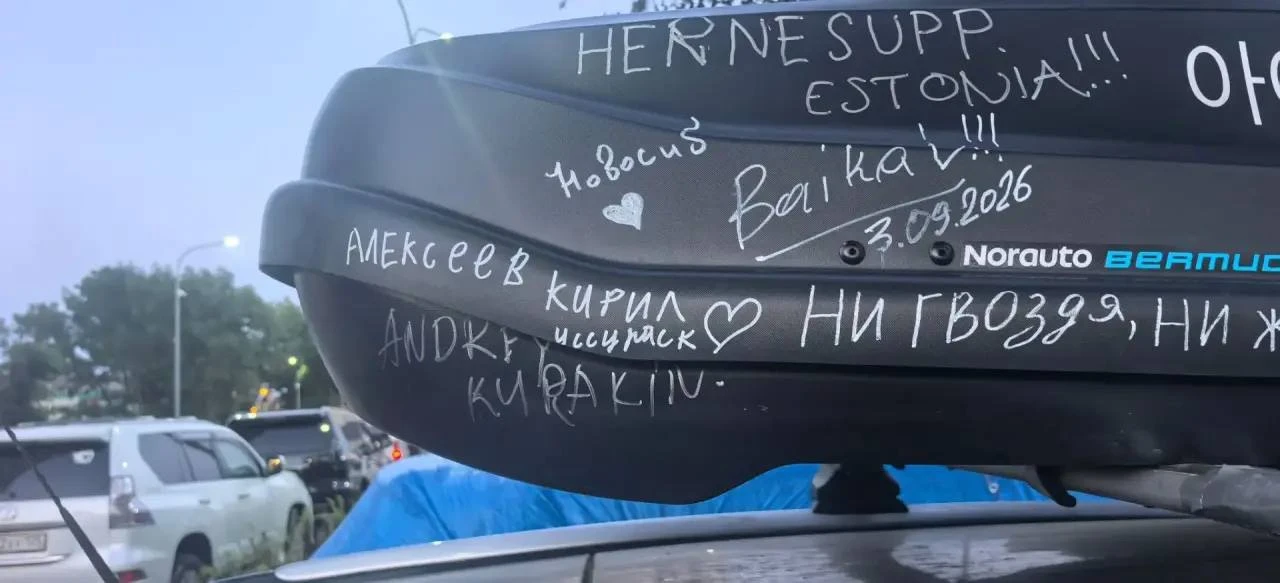 HERNESUPP.
ESTONIA!!!
아
Новосиб
Baikal!!!
3.09.2026
Norauto BERMUD
АЛЕКСЕЕВ
КИРИЛ
уссурийск
НИ ГВОЗДЯ, НИ Ж
ANDREY
KURAKIN.